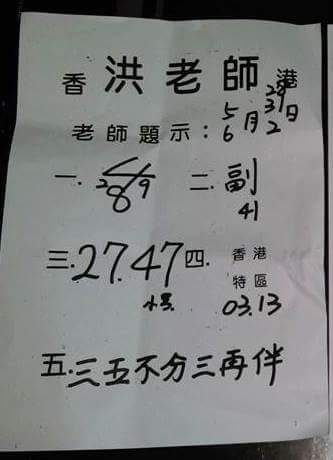 香 洪老師 港
29
5 31
老師題示：月日
6 2
一. 2 8 9 二. 副
41
三. 27. 47 四. 香港
特區
03. 13
五. 三五不分三再伴